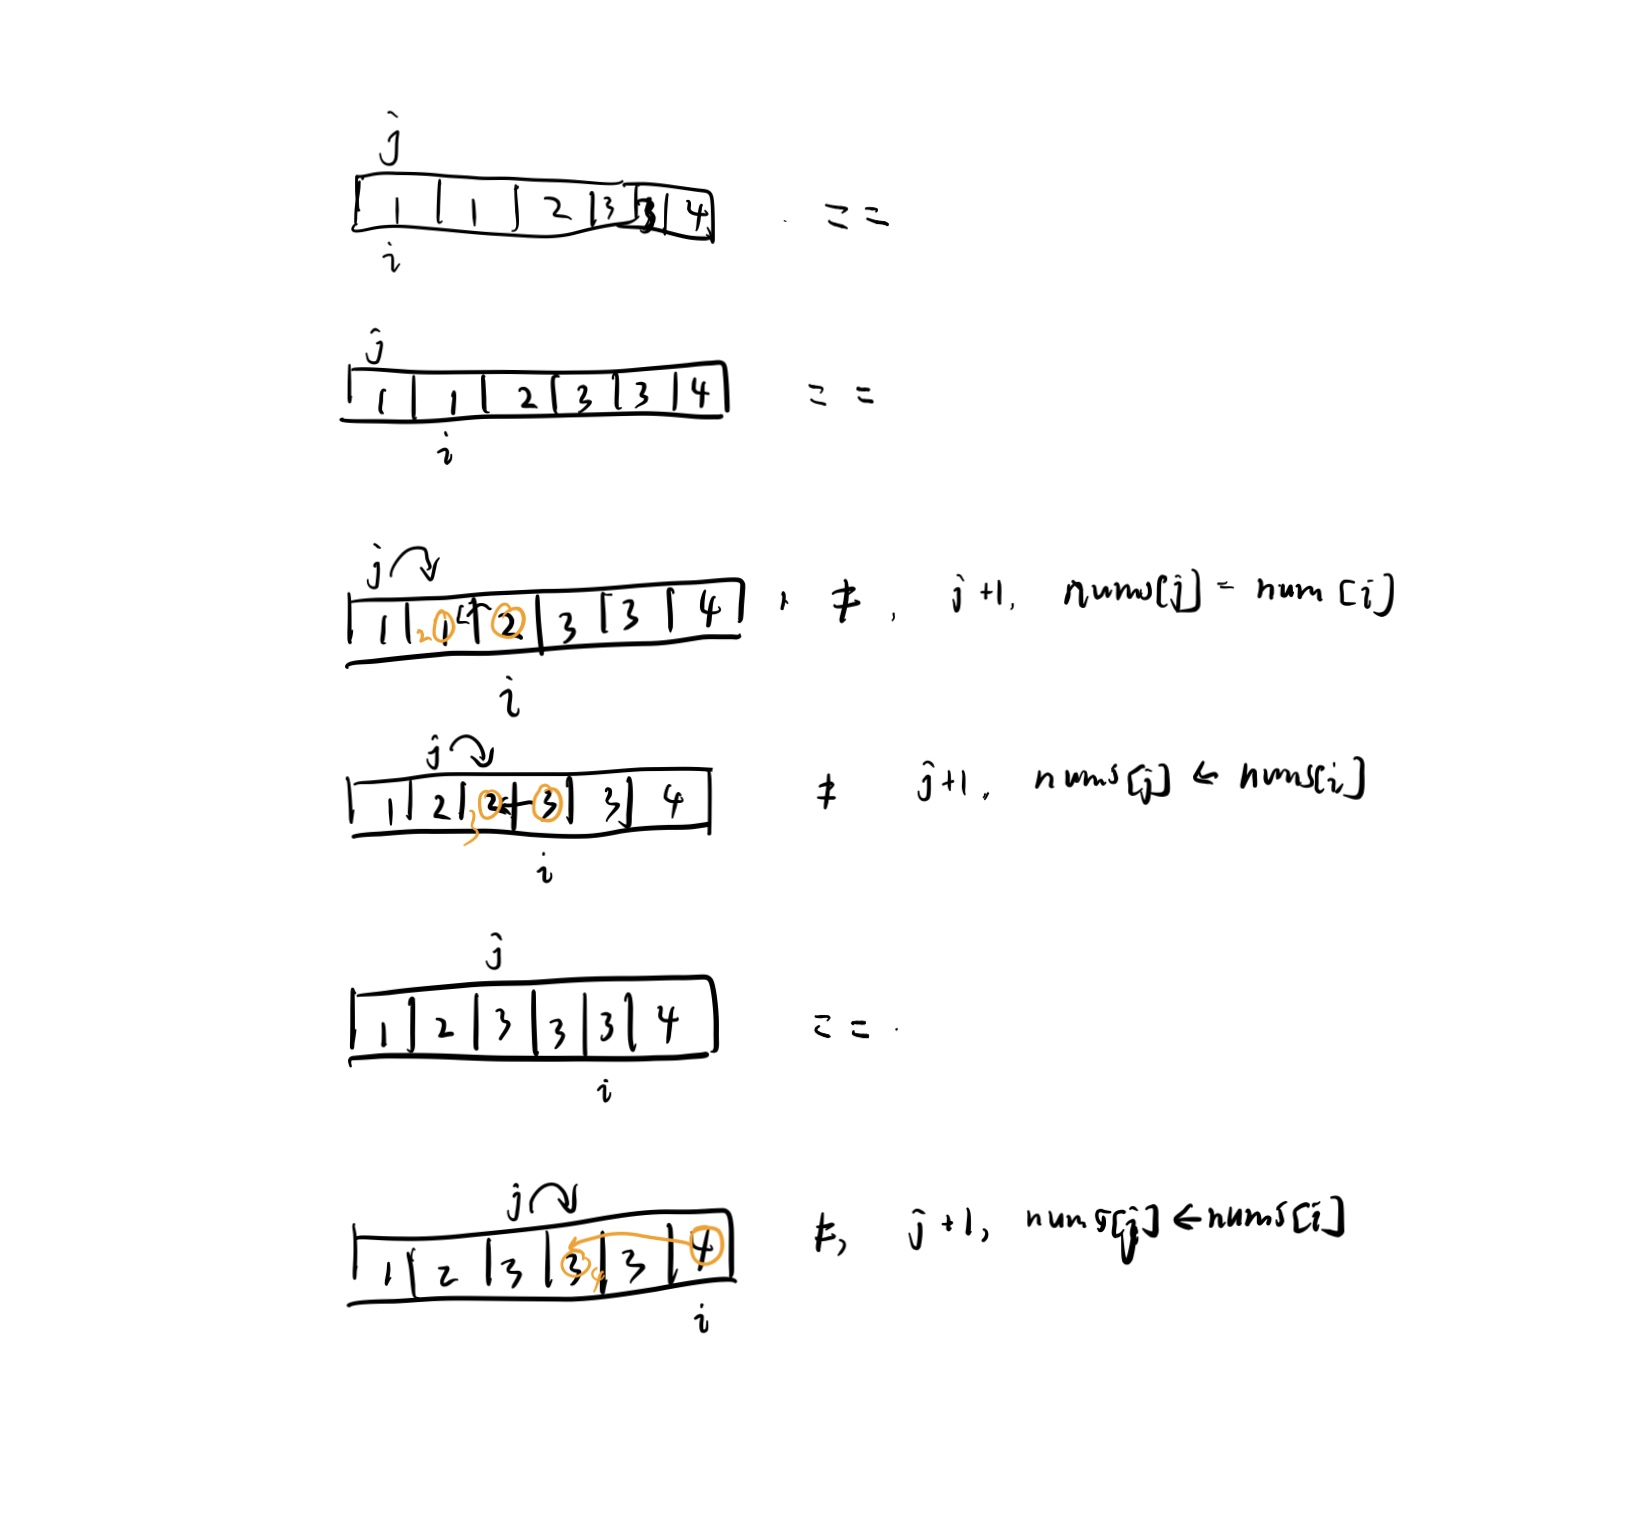 j
1 | 1 | 2 | 3 | 3 | 4 ==
i
j
1 | 1 | 2 | 3 | 3 | 4 ==
i
j
1 | 2 1 | 2 | 3 | 3 | 4 ≠, j+1, nums[j] = num[i]
i
j
1 | 2 | 3 2 | 3 | 3 | 4 ≠ j+1, nums[j] ← nums[i]
i
j
1 | 2 | 3 | 3 | 3 | 4 ==
i
j
1 | 2 | 3 | 3 4 | 3 | 4 ≠, j+1, nums[j] ← nums[i]
i